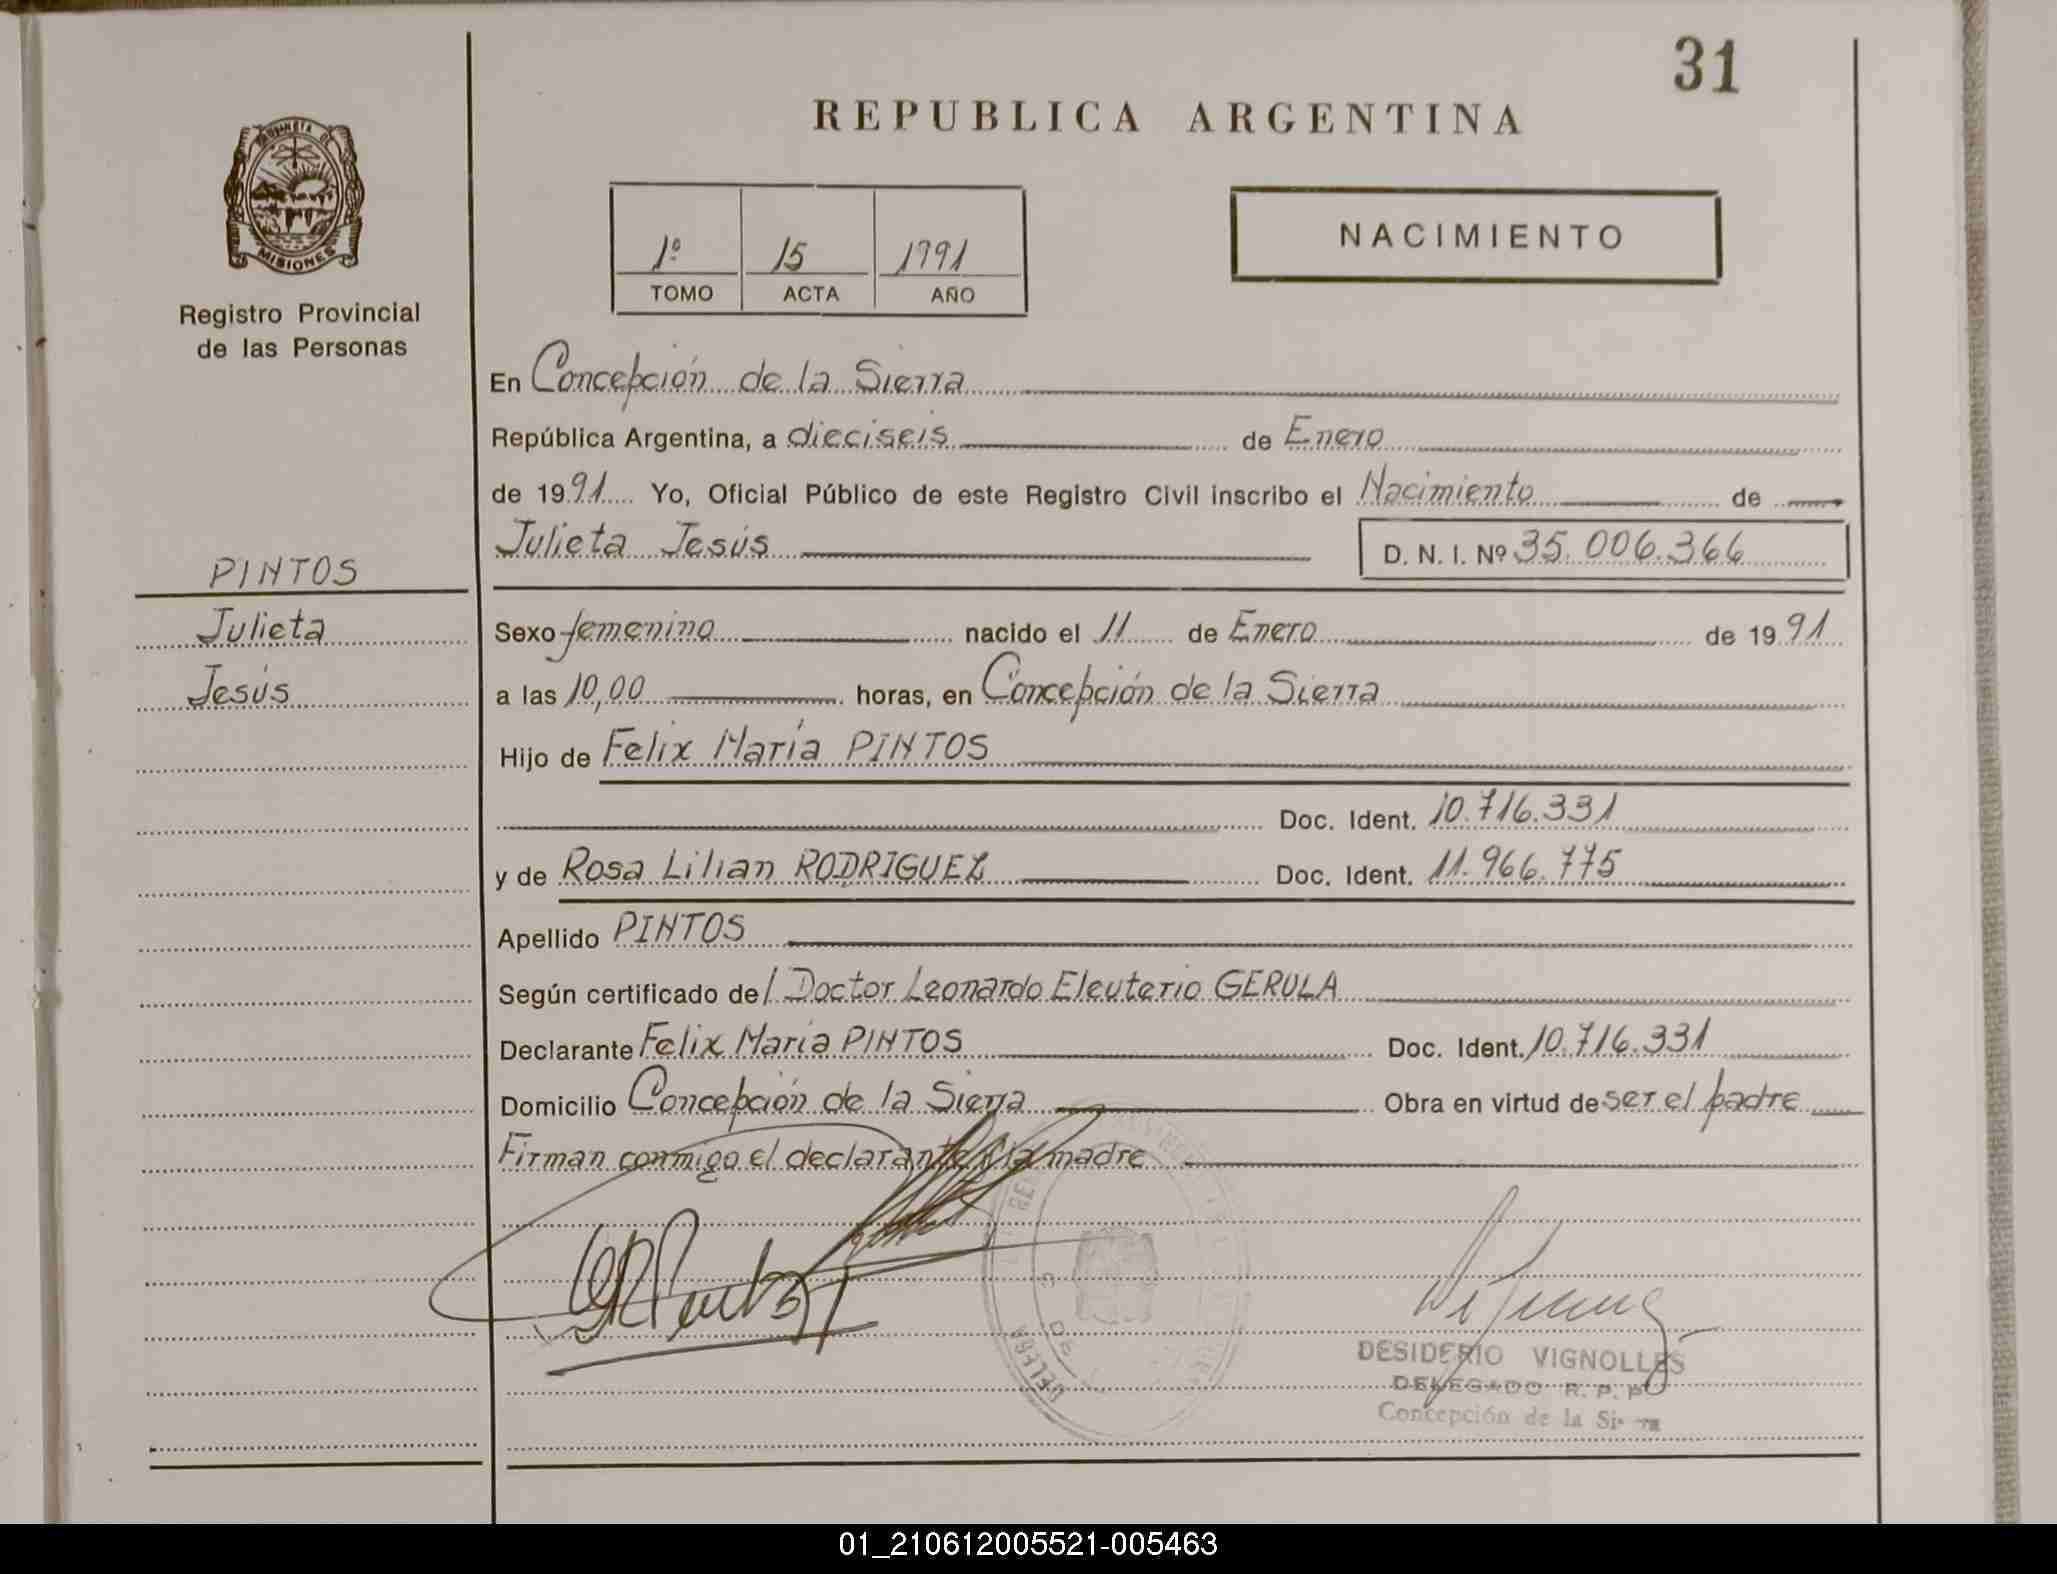 31
REPUBLICA ARGENTINA
PROVINCIA DE
MISIONES
Registro Provincial
de las Personas
1º 15 1991
TOMO ACTA AÑO
NACIMIENTO
En Concepción de la Sierra
República Argentina, a dieciseis de Enero
de 1991 Yo, Oficial Público de este Registro Civil inscribo el Nacimiento de
Julieta Jesús D. N. I. Nº 35.006.366
PINTOS
Julieta
Jesús
Sexo femenino nacido el 11 de Enero de 1991
a las 10,00 horas, en Concepción de la Sierra
Hijo de Felix María PINTOS
Doc. Ident. 10.716.331
y de Rosa Lilian RODRIGUEZ Doc. Ident. 11.966.775
Apellido PINTOS
Según certificado del Doctor Leonardo Eleuterio GERULA
Declarante Felix María PINTOS Doc. Ident. 10.716.331
Domicilio Concepción de la Sierra Obra en virtud de ser el padre
Firman conmigo el declarante y la madre
DESIDERIO VIGNOLLES
DELEGADO R. P. P.
Concepción de la Sierra
01_210612005521-005463